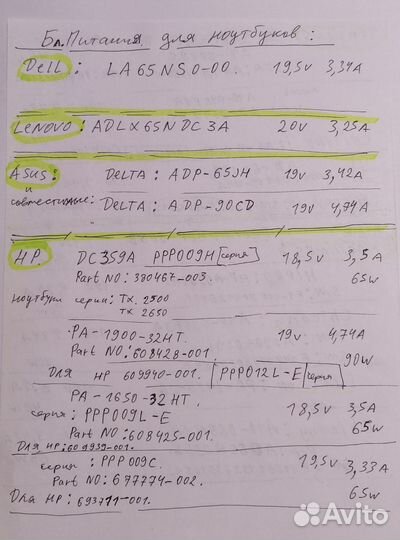 Бл.Питания для ноутбуков:
Dell: LA65NS0-00. 19,5v 3,34A
Lenovo: ADLX65NDC3A 20v 3,25A
Asus: Delta: ADP-65JH 19v 3,42A
и
совместимые: Delta: ADP-90CD 19v 4,74A
HP. DC359A PPP009H [серия] 18,5v 3,5A
Part NO: 380467-003. 65w
Ноутбуки серии: Tx. 2500
Tx 2650
PA-1900-32HT. 19v 4,74A
Part NO: 608428-001. 90w
Для HP 609940-001. PPP012L-E серия
PA-1650-32HT. 18,5v 3,5A
серия: PPP009L-E 65w
Part NO: 608425-001.
Для HP: 609939-001.
серия: PPP009C. 19,5v 3,33A
Part NO: 677774-002.
Для HP: 693711-001. 65w
Avito